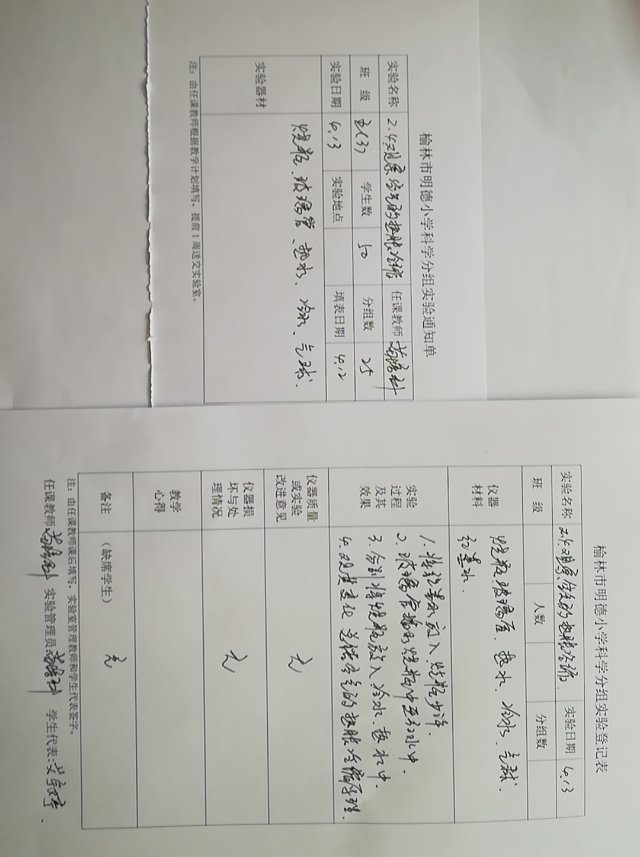 榆林市明德小学科学分组实验通知单
实验名称 2.4观察空气的热胀冷缩 任课教师
班 级 五(3) 学生数 50 分组数 25
实验日期 4.13 实验地点 填表日期 4.12
实验器材 烧瓶、玻璃管、热水、冷水、气球.
注：由任课教师根据教学计划填写，提前1周送交实验室。
榆林市明德小学科学分组实验登记表
实验名称 2.4观察空气的热胀冷缩. 实验日期 4.13
班 级 人数 分组数
仪器材料 烧瓶、玻璃管、热水、冷水、气球.
红墨水.
实验过程及其效果 1.将红墨水放入烧瓶少许.
2.玻璃管插到烧瓶中至红水中.
3.分别将烧瓶放入冷水、热水中.
4.观察 空气的热胀冷缩原理.
仪器质量或实验改进意见 无
仪器损坏与处理情况 无
教学心得
备注 (缺席学生) 无
注：由任课教师课后填写，实验室管理教师和学生代表签字。
任课教师: 实验管理员: 学生代表: